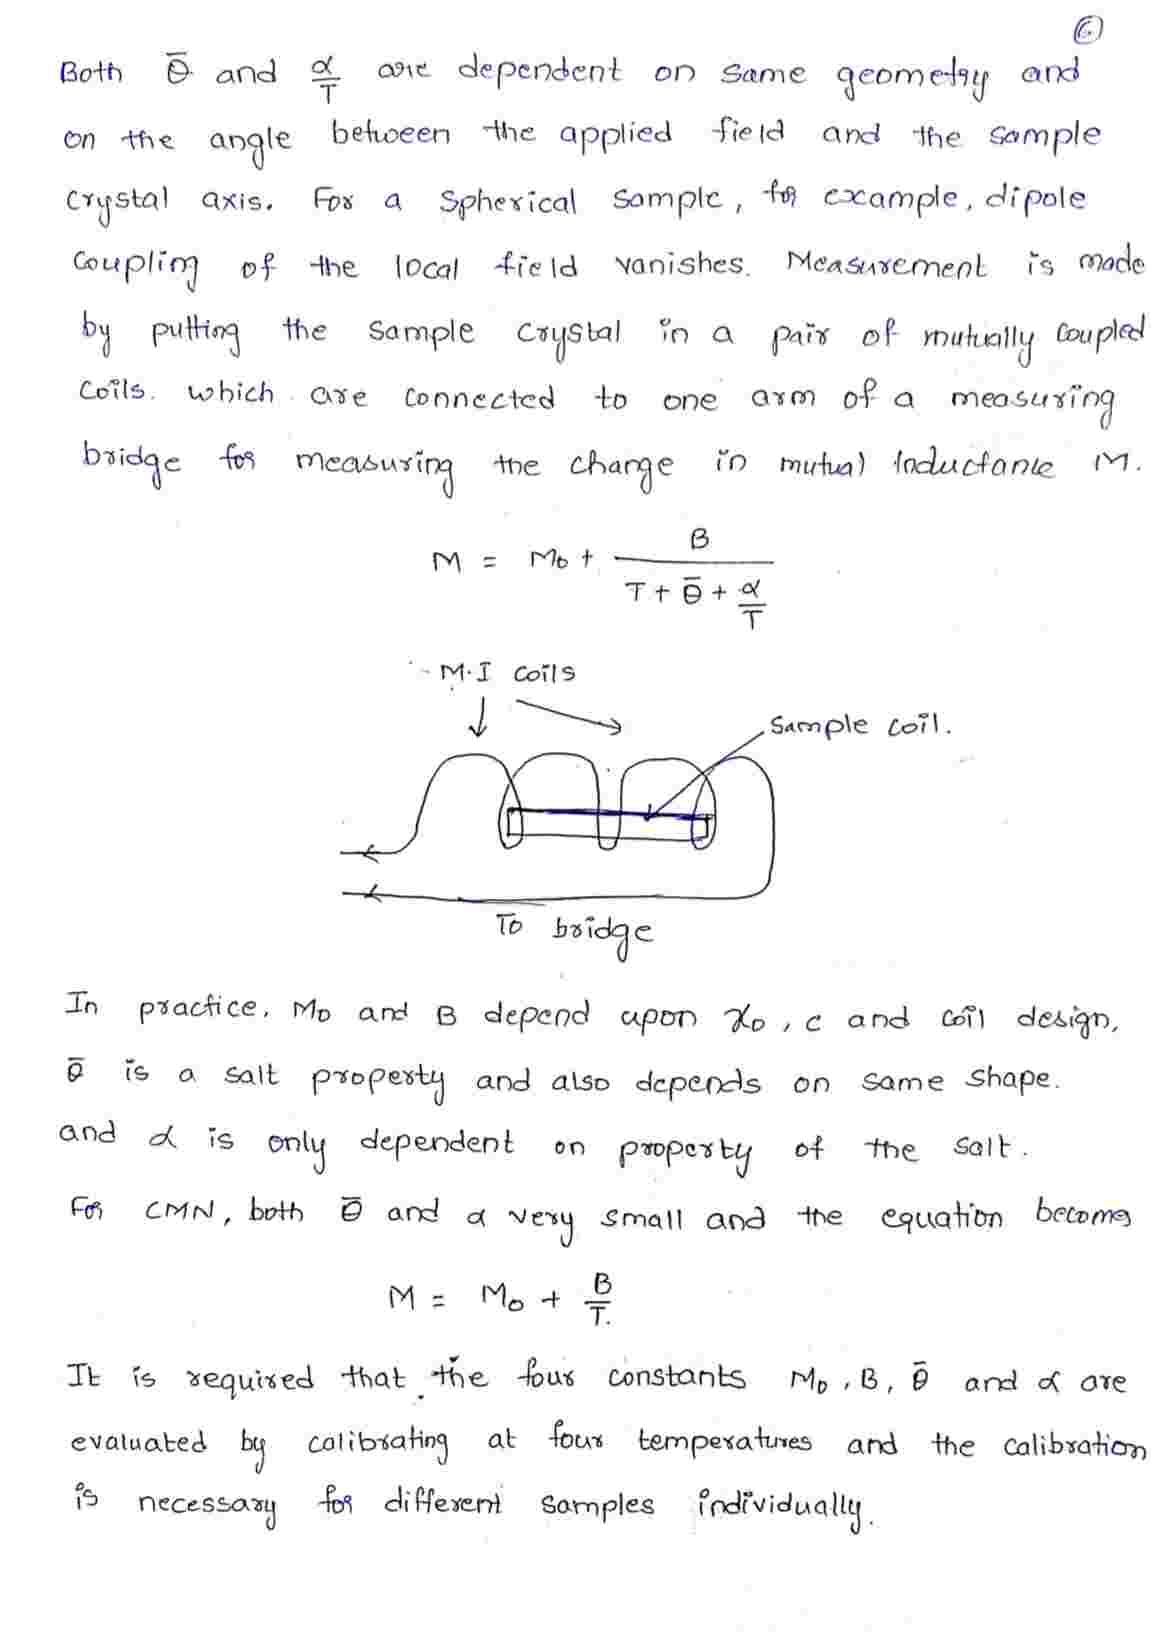 6
Both θ̄ and α/T are dependent on same geometry and
on the angle between the applied field and the sample
crystal axis. For a spherical sample, for example, dipole
coupling of the local field vanishes. Measurement is made
by putting the sample crystal in a pair of mutually coupled
coils. which are connected to one arm of a measuring
bridge for measuring the change in mutual Inductance M.
M = M₀ + B / (T + θ̄ + α/T)
M.I coils
sample coil.
To bridge
In practice, M₀ and B depend upon χ₀, c and coil design,
θ̄ is a salt property and also depends on same shape.
and α is only dependent on property of the salt.
For CMN, both θ̄ and α very small and the equation becomes
M = M₀ + B/T.
It is required that the four constants M₀, B, θ̄ and α are
evaluated by calibrating at four temperatures and the calibration
is necessary for different samples individually.